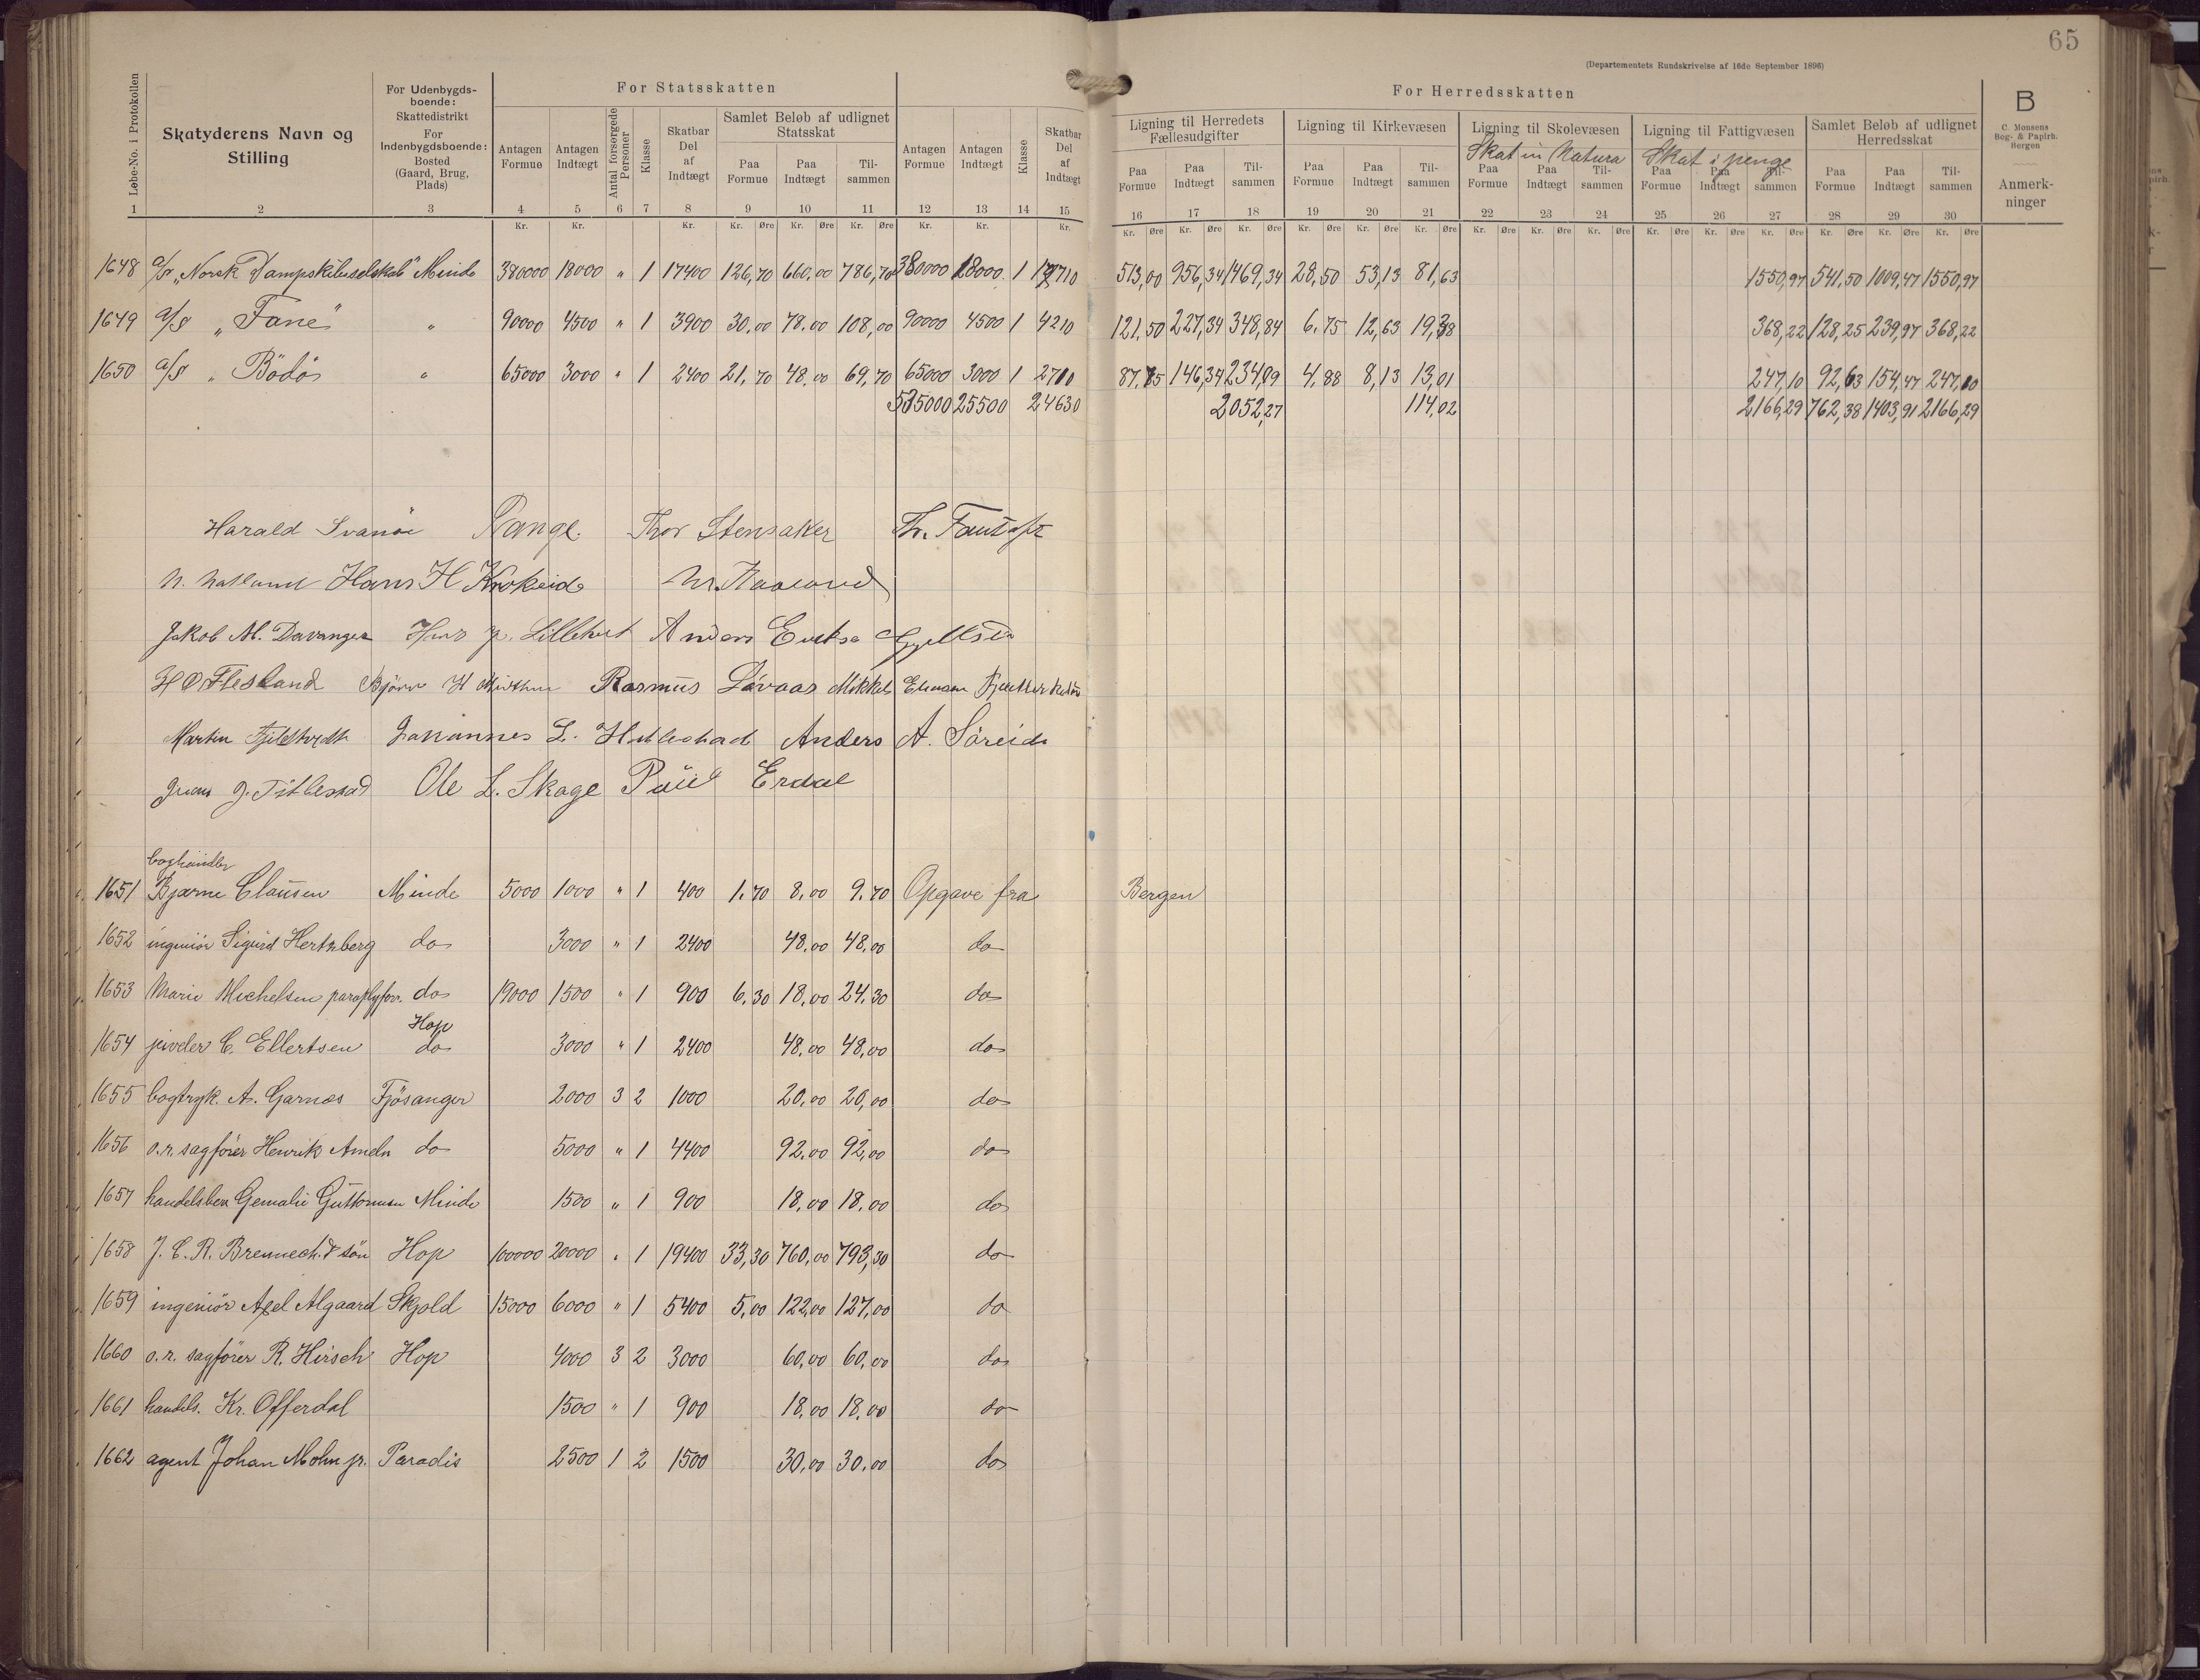 65
(Departementets Rundskrivelse af 16de September 1896)
Løbe-No. i Protokollen
Skatyderens Navn og Stilling
For Udenbygdsboende: Skattedistrikt
For Indenbygdsboende: Bosted (Gaard, Brug, Plads)
For Statsskatten
Antagen Formue | Antagen Indtægt | Antal forsørgede Personer | Klasse | Skatbar Del af Indtægt
Samlet Beløb af udlignet Statsskat
Paa Formue | Paa Indtægt | Tilsammen
Antagen Formue | Antagen Indtægt | Klasse | Skatbar Del af Indtægt
For Herredsskatten
Ligning til Herredets Fællesudgifter
Paa Formue | Paa Indtægt | Tilsammen
Ligning til Kirkevæsen
Paa Formue | Paa Indtægt | Tilsammen
Ligning til Skolevæsen
Skat in Natura
Paa Formue | Paa Indtægt | Tilsammen
Ligning til Fattigvæsen
Skat i penge
Paa Formue | Paa Indtægt | Tilsammen
Samlet Beløb af udlignet Herredsskat
Paa Formue | Paa Indtægt | Tilsammen
B
C. Monsens Bog- & Papirh. Bergen
Anmerkninger
1 2 3 4 5 6 7 8 9 10 11 12 13 14 15 16 17 18 19 20 21 22 23 24 25 26 27 28 29 30
1648 a/s „Norsk Dampskibsselskab" Minde 380000 18000 „ 1 17400 126,70 660,00 786,70 380000 18000 1 17710 513,00 956,34 1469,34 28,50 53,13 81,63 1550,97 541,50 1009,47 1550,97
1649 a/s „Fane" „ 90000 4500 „ 1 3900 30,00 78,00 108,00 90000 4500 1 4210 121,50 227,34 348,84 6,75 12,63 19,38 368,22 128,25 239,97 368,22
1650 a/s „Bodö „ 65000 3000 „ 1 2400 21,70 48,00 69,70 65000 3000 1 2710 87,75 146,34 234,09 4,88 8,13 13,01 247,10 92,63 154,47 247,10
535000 25500 24630 2052,27 114,02 2166,29 762,38 1403,91 2166,29
Harald Svanöe Thor Stensaker Th. Fantoft
Hans H Krokeide
Jakob M. Davanger Anders
H O Flesland Rasmus Lövaas Mikkel
Martin Johannes L. Anders A. Söreide
J. Titlestad Ole L. Skage Paul Erdal
boghandler
1651 Bjarne Clausen Minde 5000 1000 „ 1 400 1,70 8,00 9,70 Opgave fra Bergen
1652 ingeniör Sigurd Hertzberg do 3000 „ 1 2400 48,00 48,00 do
1653 Marie Michelsen paraplyforr. do 19000 1500 „ 1 900 6,30 18,00 24,30 do
Hop
1654 juveler C. Ellertsen do 3000 „ 1 2400 48,00 48,00 do
1655 bogtryk. A. Garnæs Fjösanger 2000 3 2 1000 20,00 20,00 do
1656 o.r. sagfører Henrik Ameln do 5000 „ 1 4400 92,00 92,00 do
1657 handelsbev. Guttormsen Minde 1500 „ 1 900 18,00 18,00 do
1658 J. C. R. Brennech. & sön Hop 100000 20000 „ 1 19400 33,30 760,00 793,30 do
1659 ingeniör Axel Algaard Skjold 15000 6000 „ 1 5400 5,00 122,00 127,00 do
1660 o.r. sagfører R. Hirsch Hop 4000 3 2 3000 60,00 60,00 do
1661 handels. Kr. Offerdal 1500 „ 1 900 18,00 18,00 do
1662 agent Johan Mohn jr. Paradis 2500 1 2 1500 30,00 30,00 do